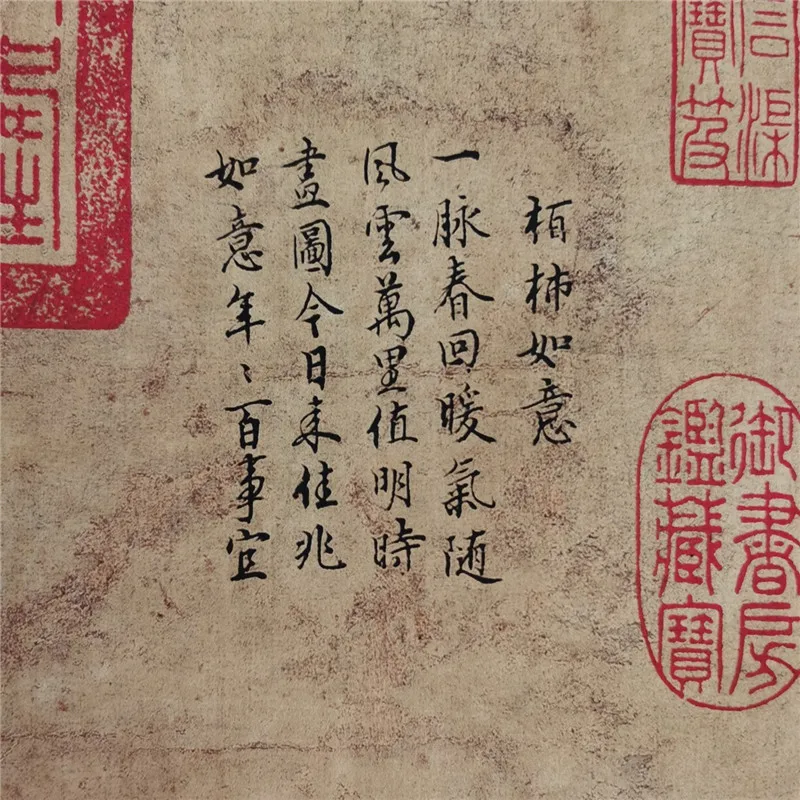 石渠
寶笈
御書房
鑑藏寶
栢柿如意
一脉春回暖氣随
風雲萬里值明時
畫圖今日来佳兆
如意年〻百事宜